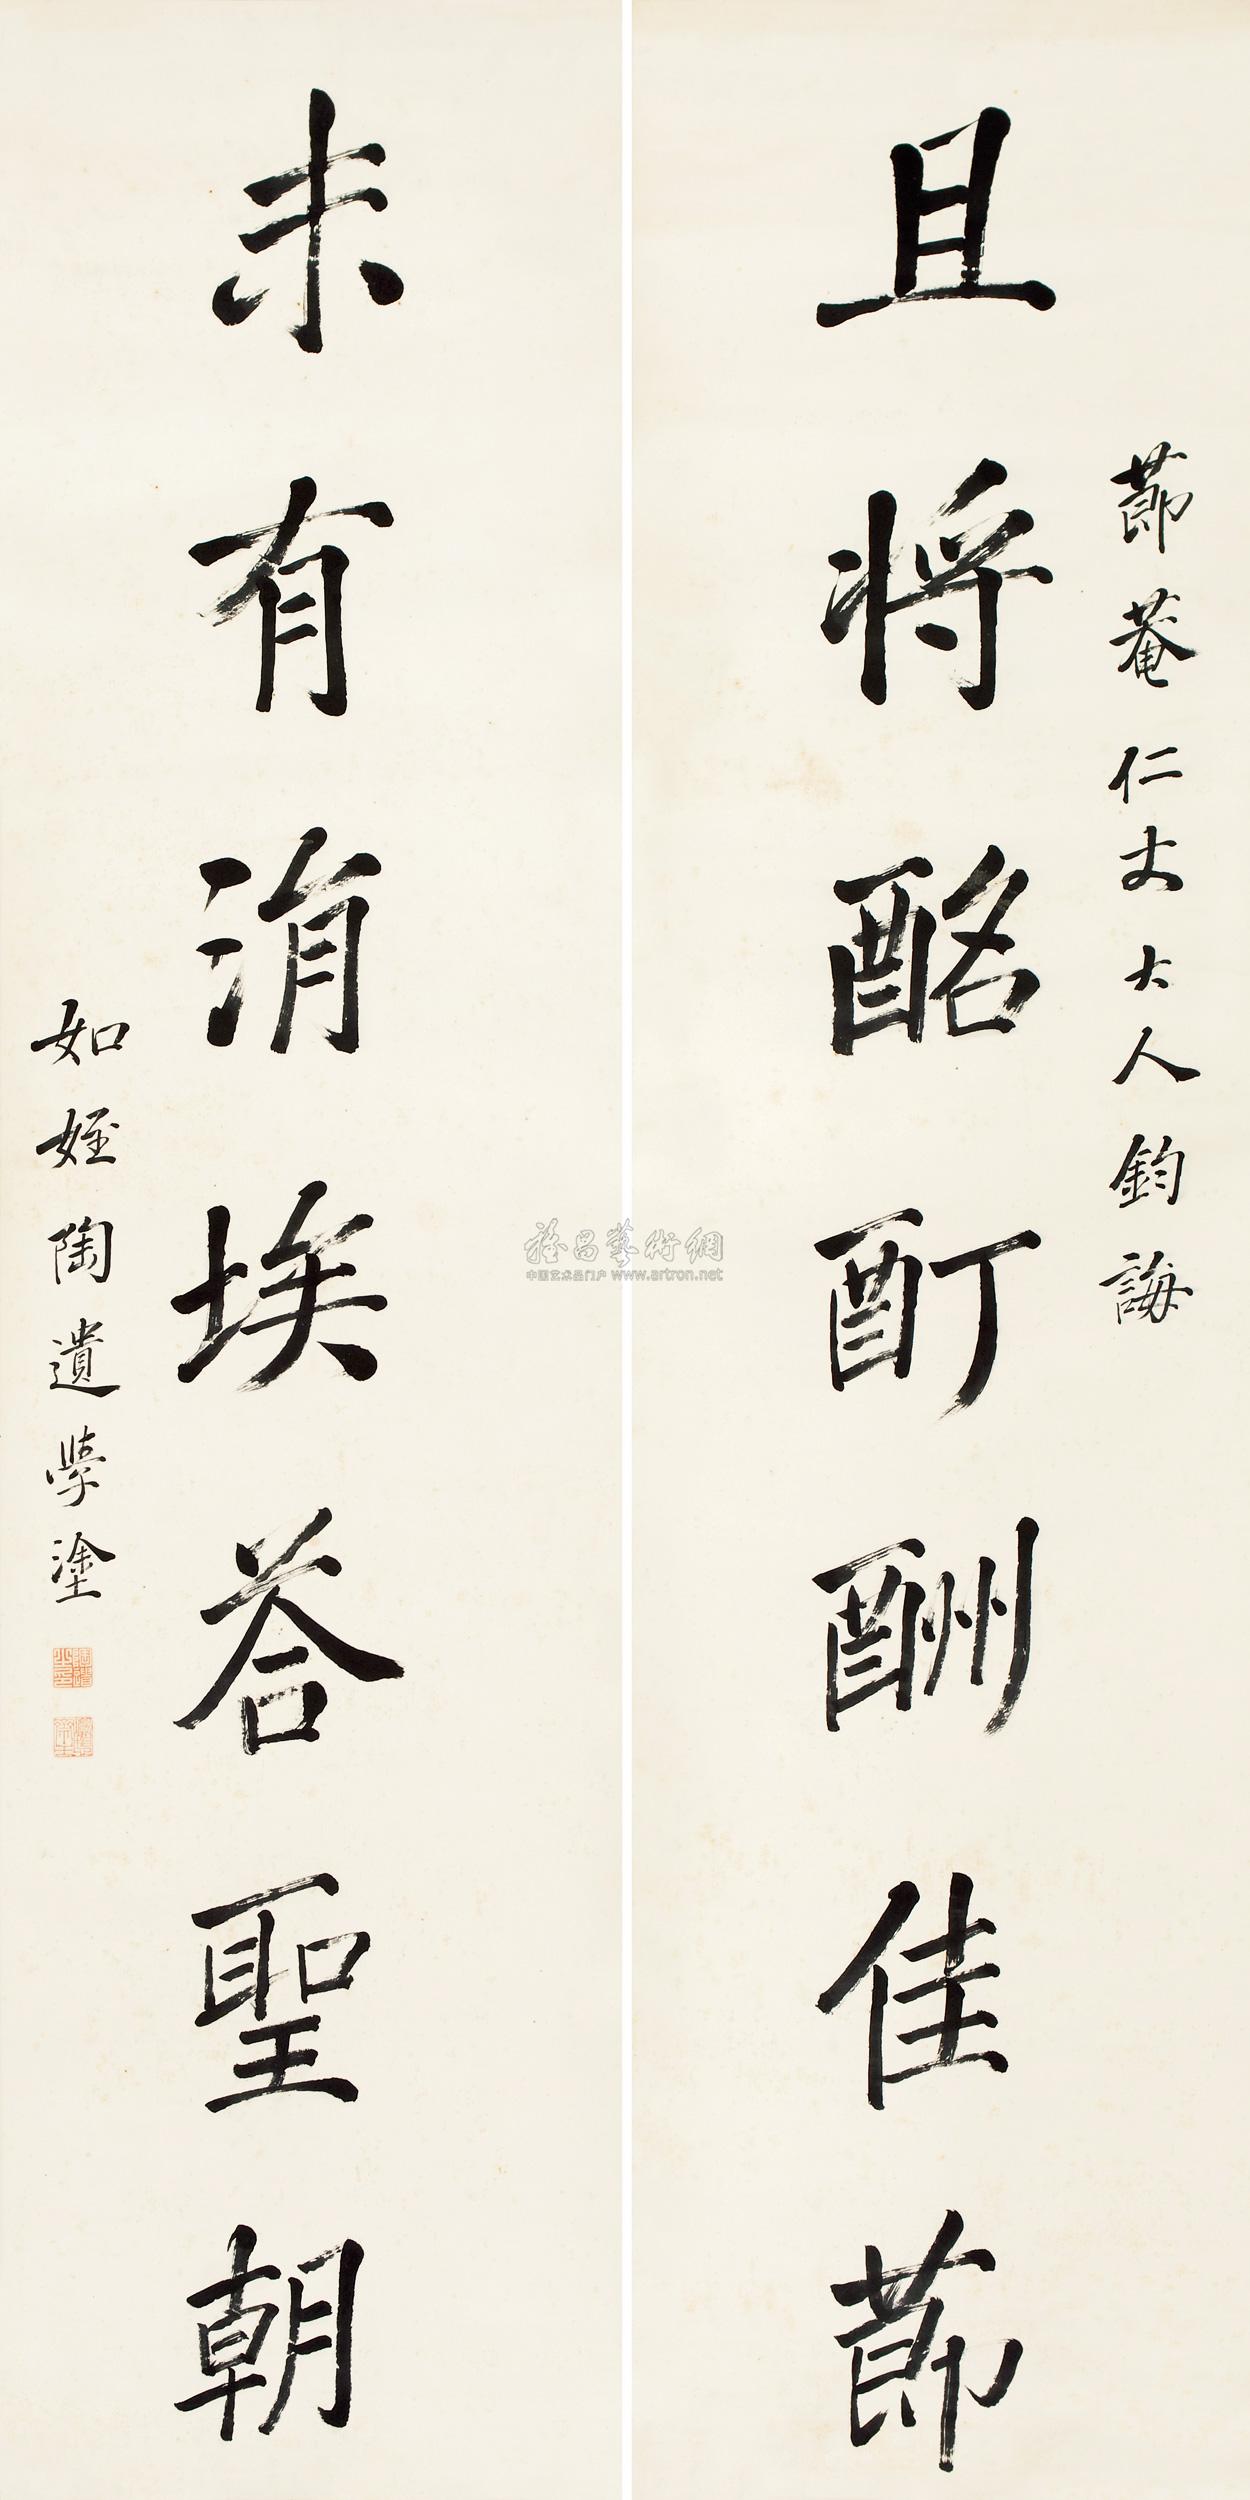 莭菴仁丈大人鈞誨
且将酩酊酬佳莭
未有涓埃荅聖朝
如姪陶遺學塗
雅昌藝術網
中国艺术品门户 www.artron.net